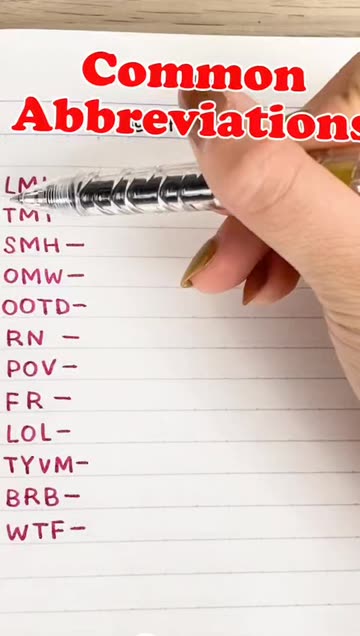 Common
Abbreviations
SMH –
OMW–
OOTD–
RN –
POV–
FR –
LOL–
TYVM–
BRB–
WTF–